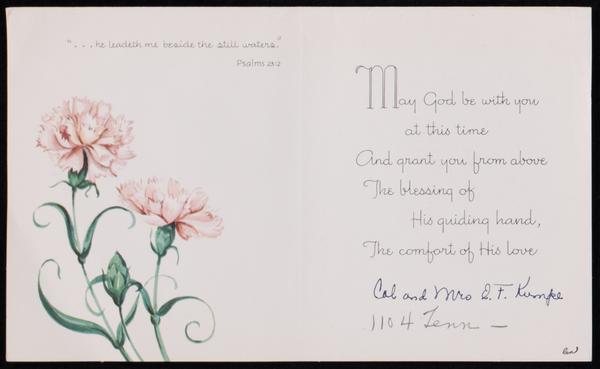 ". . . he leadeth me beside the still waters."
Psalms 23:2
May God be with you
at this time
And grant you from above
The blessing of
His guiding hand,
The comfort of His love
Col and Mrs S. F. Kumpe
1104 Tenn —